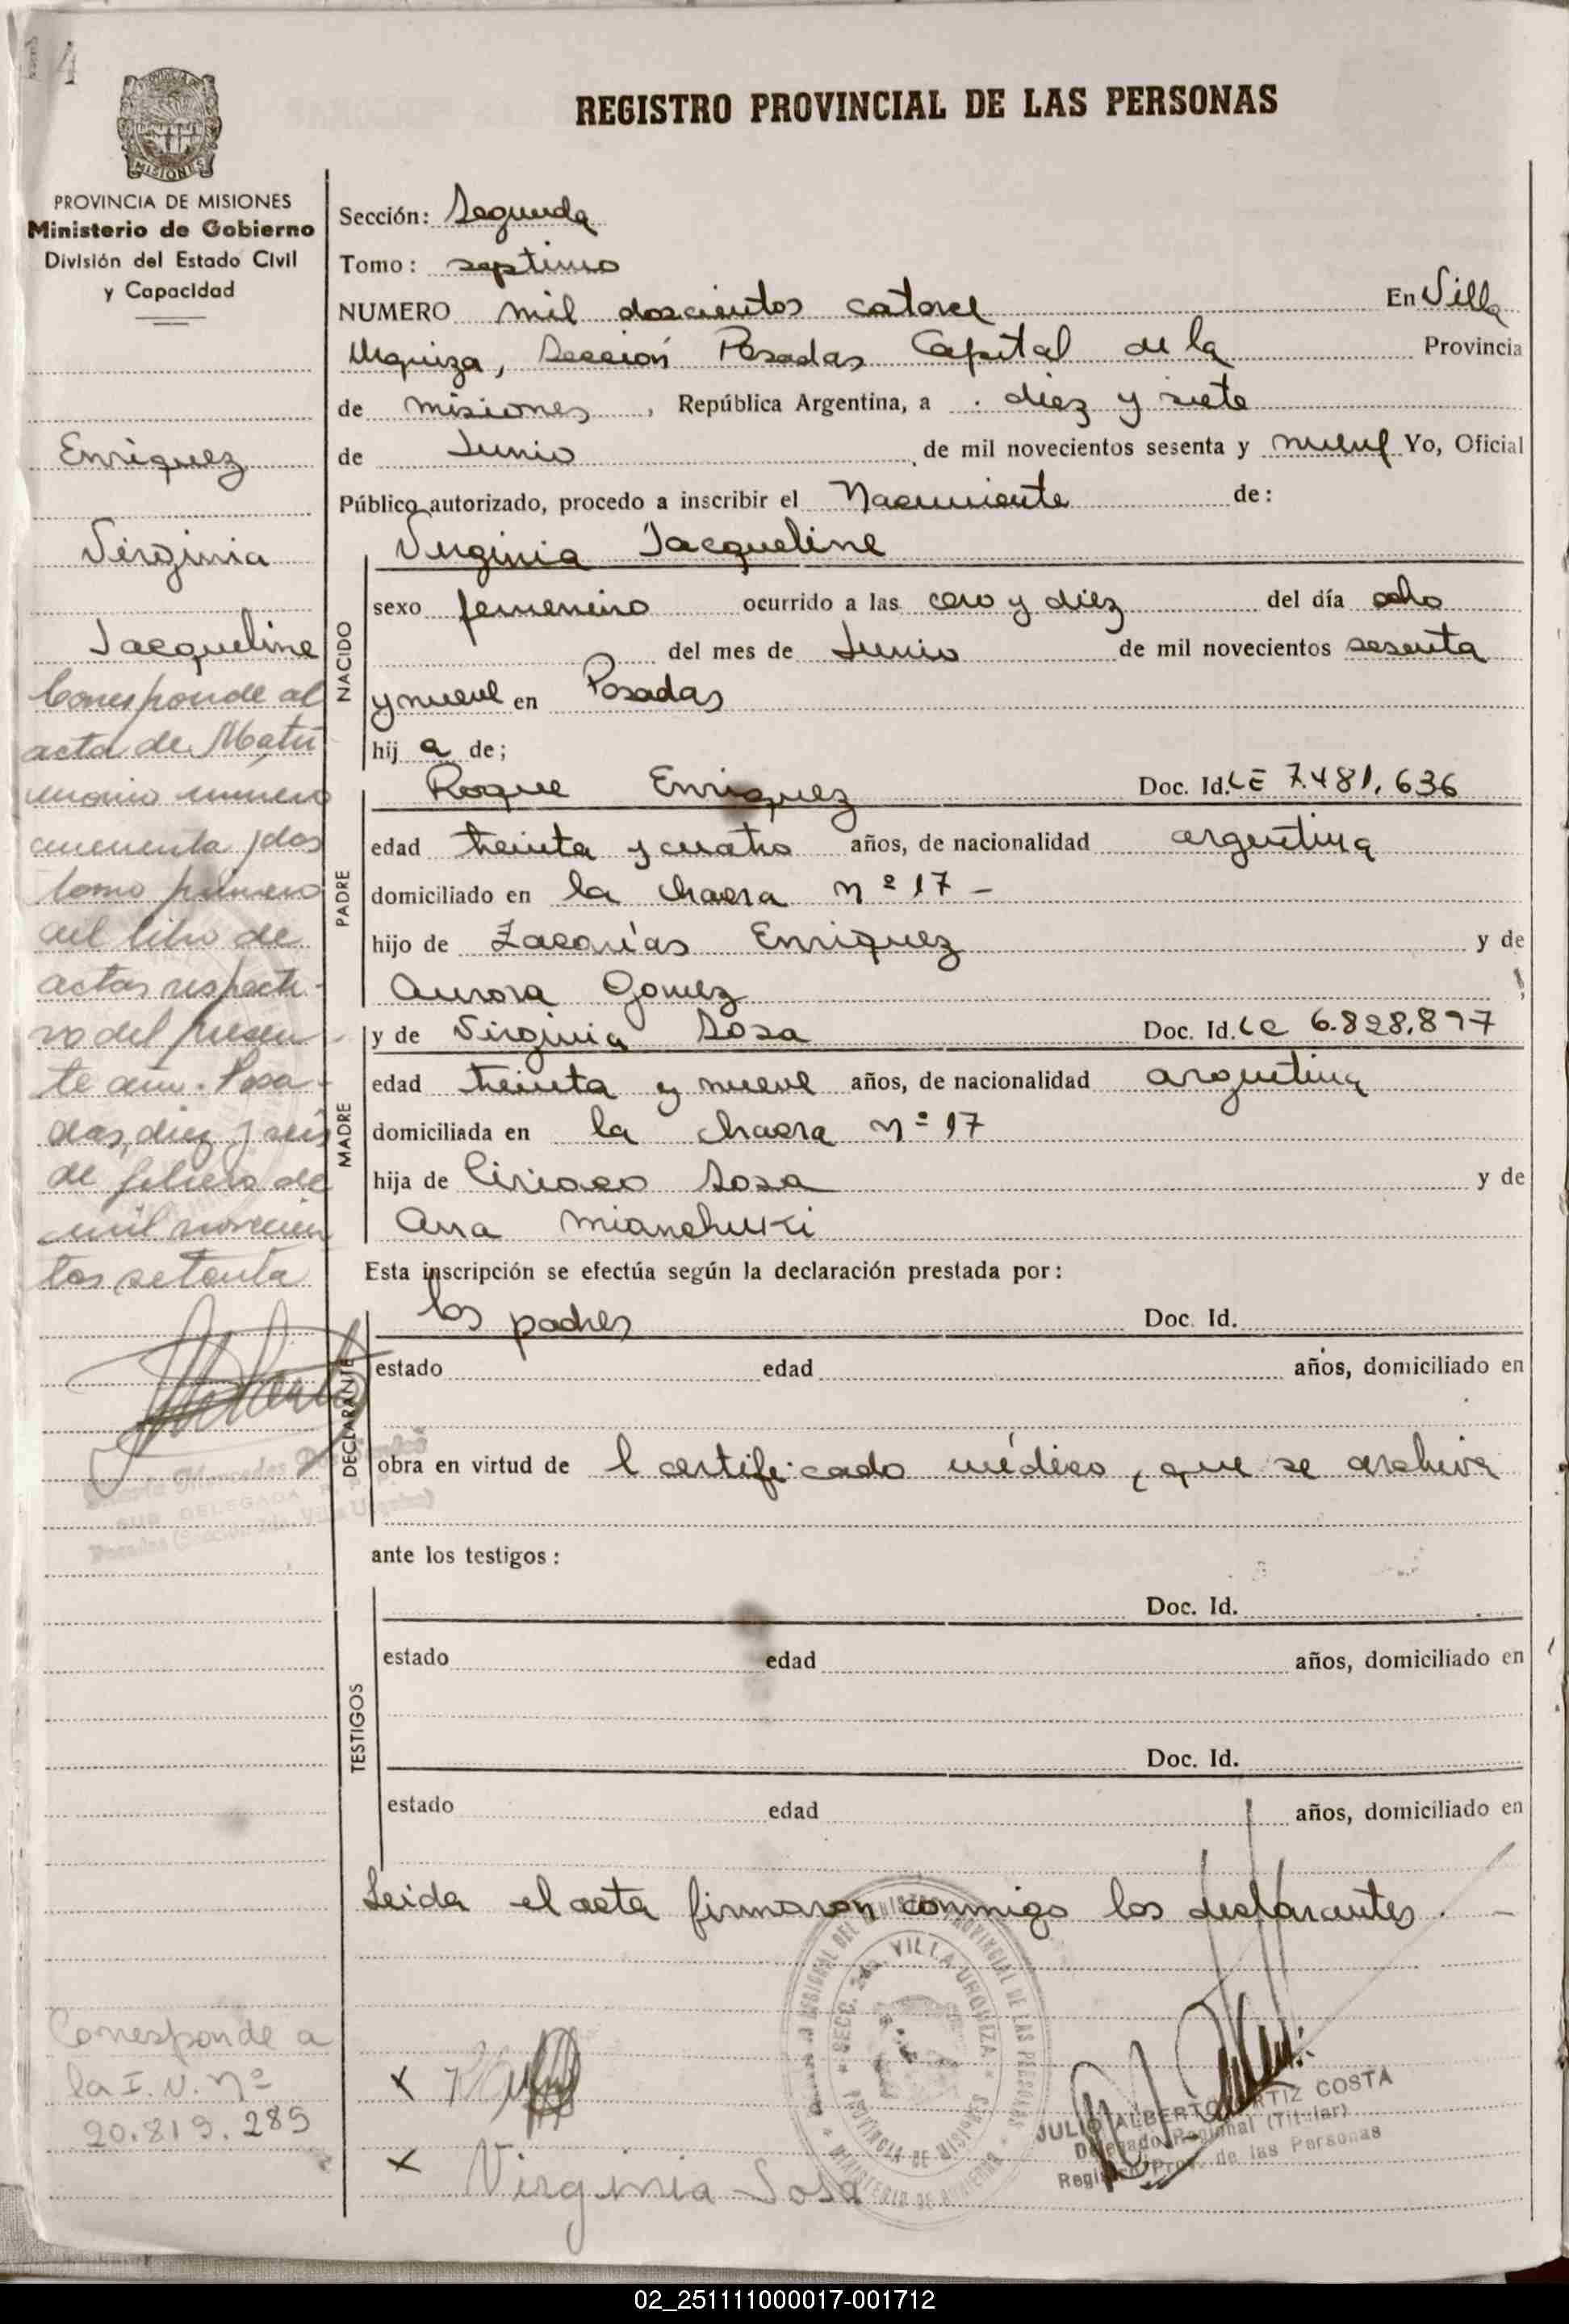 4
MISIONES
PROVINCIA DE MISIONES
Ministerio de Gobierno
División del Estado Civil
y Capacidad
REGISTRO PROVINCIAL DE LAS PERSONAS
Sección: Segunda
Tomo: septimo
NUMERO mil doscientos catorce En Villa
Urquiza, Sección Posadas Capital de la Provincia
de misiones, República Argentina, a diez y siete
de Junio de mil novecientos sesenta y nueve Yo, Oficial
Público autorizado, procedo a inscribir el Nacimiento de:
Virginia Jacqueline
NACIDO
sexo femenino ocurrido a las cero y diez del día ocho
del mes de Junio de mil novecientos sesenta
y nueve en Posadas
hij a de;
Roque Enriquez Doc. Id. LE 7.481.636
PADRE
edad treinta y cuatro años, de nacionalidad argentina
domiciliado en la chacra nº 17 -
hijo de Zacarías Enriquez y de
Aurora Gomez
y de Virginia Sosa Doc. Id. LC 6.828.897
MADRE
edad treinta y nueve años, de nacionalidad argentina
domiciliada en la chacra nº 17
hija de Ciriaco Sosa y de
Ana Mianchuki
Esta inscripción se efectúa según la declaración prestada por:
los padres Doc. Id.
DECLARANTE
estado edad años, domiciliado en
obra en virtud de l certificado médico, que se archiva
ante los testigos:
Doc. Id.
TESTIGOS
estado edad años, domiciliado en
Doc. Id.
estado edad años, domiciliado en
Leida el acta firmaron conmigo los declarantes. -
x
x Virginia Sosa
SECC. 2da. VILLA URQUIZA
PROVINCIA DE MISIONES
MINISTERIO DE GOBIERNO
JULIO ALBERTO ORTIZ COSTA
Delegado Regional (Titular)
Registro Prov. de las Personas
Enriquez
Virginia
Jacqueline
Corresponde al
acta de Matri
monio número
cincuenta y dos
tomo primero
del libro de
actas respecti-
vo del presen-
te año. Posa-
das, diez y seis
de febrero de
mil novecien
tos setenta
SUB DELEGADA
Corresponde a
la I. N. Nº
20.819.289
02_251111000017-001712